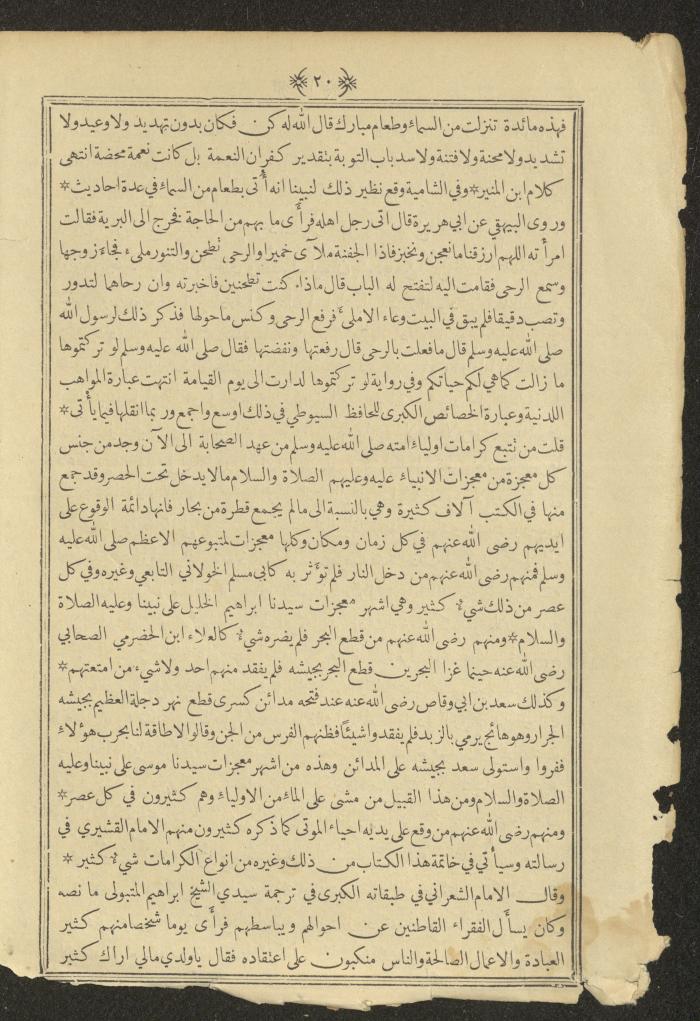 ٢٠
فهذه مائدة تنزلت من السماء وطعام مبارك قال الله له كن فكان بدون تهديد ولا وعيد ولا
تشديد ولا محنة ولا فتنة ولا سد باب التوبة بتقدير كفران النعمة بل كانت نعمة محضة انتهى
كلام ابن المنير * وفي الشامية وقع نظير ذلك لنبينا انه أُتى بطعام من السماء في عدة احاديث *
وروى البيهقي عن ابي هريرة قال اتى رجل اهله فرأى ما بهم من الحاجة فخرج الى البرية فقالت
امرأته اللهم ارزقنا ما نعجن ونخبز فاذا الجفنة ملآى خميرا والرحى تطحن والتنور ملىء فجاء زوجها
وسمع الرحى فقامت اليه لتفتح له الباب قال ماذا كنت تطحنين فاخبرته وان رحاهما لتدور
وتصب دقيقا فلم يبق في البيت وعاء الا ملىء فرفع الرحى وكنس ما حولها فذكر ذلك لرسول الله
صلى الله عليه وسلم قال ما فعلت بالرحى قال رفعتها ونفضتها فقال صلى الله عليه وسلم لو تركتموها
ما زالت كما هي لكم حياتكم وفي رواية لو تركتموها لدارت الى يوم القيامة انتهت عبارة المواهب
اللدنية وعبارة الخصائص الكبرى للحافظ السيوطي في ذلك اوسع واجمع وربما انقلها فيما يأتى *
قلت من تتبع كرامات اولياء امته صلى الله عليه وسلم من عهد الصحابة الى الآن وجد من جنس
كل معجزة من معجزات الانبياء عليه وعليهم الصلاة والسلام ما لا يدخل تحت الحصر وقد جمع
منها في الكتب آلاف كثيرة وهي بالنسبة الى ما لم يجمع قطرة من بحار فانها دائمة الوقوع على
ايديهم رضى الله عنهم في كل زمان ومكان وكلها معجزات لمتبوعهم الاعظم صلى الله عليه
وسلم فمنهم رضى الله عنهم من دخل النار فلم تؤثر به كابي مسلم الخولاني التابعي وغيره وفي كل
عصر من ذلك شيء كثير وهي اشهر معجزات سيدنا ابراهيم الخليل على نبينا وعليه الصلاة
والسلام * ومنهم رضى الله عنهم من قطع البحر فلم يضره شيء كالعلاء ابن الحضرمي الصحابي
رضى الله عنه حينما غزا البحرين قطع البحر بجيشه فلم يفقد منهم احد ولا شيء من امتعتهم *
وكذلك سعد بن ابي وقاص رضى الله عنه عند فتحه مدائن كسرى قطع نهر دجلة العظيم بجيشه
الجرار وهو هائج يرمي بالزبد فلم يفقدوا شيئًا فظنهم الفرس من الجن وقالوا لا طاقة لنا بحرب هؤلاء
ففروا واستولى سعد بجيشه على المدائن وهذه من اشهر معجزات سيدنا موسى على نبينا وعليه
الصلاة والسلام ومن هذا القبيل من مشى على الماء من الاولياء وهم كثيرون في كل عصر *
ومنهم رضى الله عنهم من وقع على يديه احياء الموتى كما ذكره كثيرون منهم الامام القشيري في
رسالته وسيأتي في خاتمة هذا الكتاب من ذلك وغيره من انواع الكرامات شيء كثير *
وقال الامام الشعراني في طبقاته الكبرى في ترجمة سيدي الشيخ ابراهيم المتبولى ما نصه
وكان يسأل الفقراء القاطنين عن احوالهم ويباسطهم فرأى يوما شخصا منهم كثير
العبادة والاعمال الصالحة والناس منكبون على اعتقاده فقال يا ولدي مالي اراك كثير